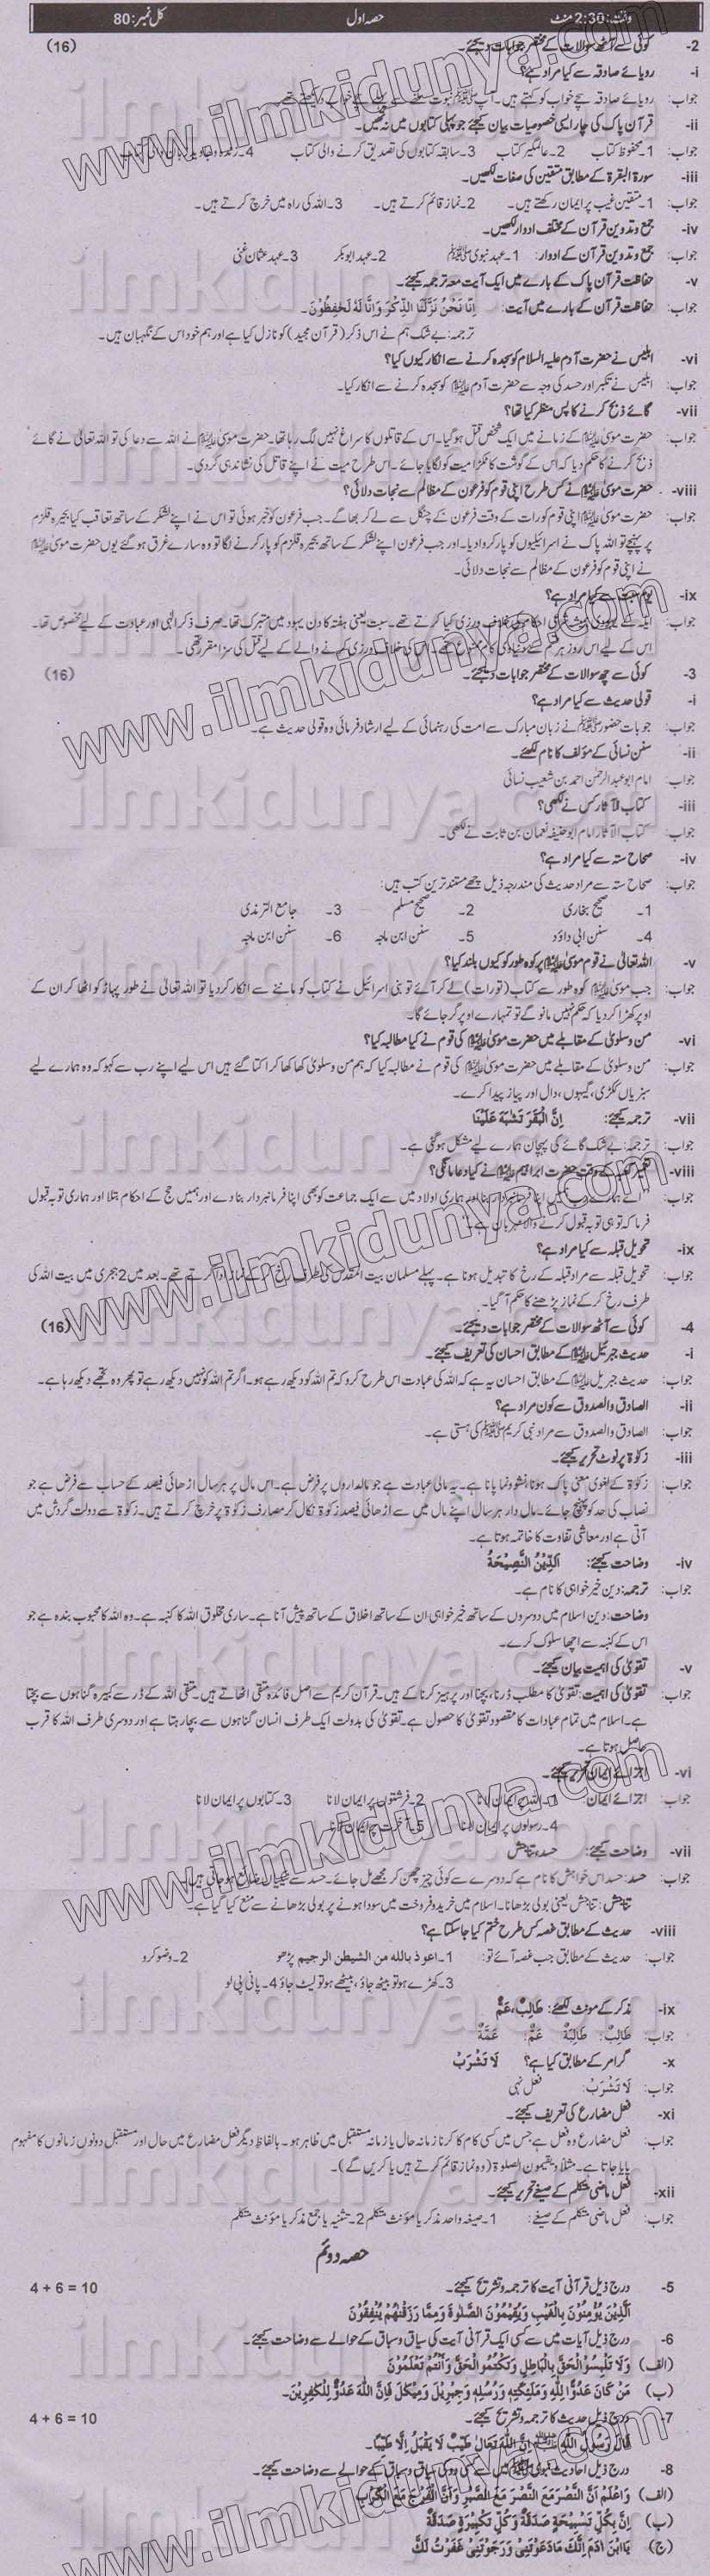 وقت: 2:30 منٹ حصہ اول کل نمبر: 80
2- کوئی سے آٹھ سوالات کے مختصر جوابات دیجئے۔ (16)
i- رویائے صادقہ سے کیا مراد ہے؟
جواب: رویائے صادقہ سچے خواب کو کہتے ہیں۔ آپ ﷺ نبوت
ii- قرآن پاک کی چار ایسی خصوصیات بیان کیجئے جو پہلی کتابوں میں نہ تھیں۔
جواب: 1۔ محفوظ کتاب 2۔ عالمگیر کتاب 3۔ سابقہ کتابوں کی تصدیق کرنے والی کتاب 4۔
iii- سورۃ البقرۃ کے مطابق متقین کی صفات لکھیں۔
جواب: 1۔ متقین غیب پر ایمان رکھتے ہیں۔ 2۔ نماز قائم کرتے ہیں۔ 3۔ اللہ کی راہ میں خرچ کرتے ہیں۔
iv- جمع و تدوین قرآن کے مختلف ادوار لکھیں۔
جواب: جمع و تدوین قرآن کے ادوار: 1۔ عہد نبوی ﷺ 2۔ عہد ابوبکر 3۔ عہد عثمان غنی
v- حفاظت قرآن پاک کے بارے میں ایک آیت معہ ترجمہ کیجئے۔
جواب: حفاظت قرآن کے بارے میں آیت: اِنَّا نَحْنُ نَزَّلْنَا الذِّكْرَ وَاِنَّا لَهٗ لَحٰفِظُوْنَ۔
ترجمہ: بے شک ہم نے اس ذکر (قرآن مجید) کو نازل کیا ہے اور ہم خود اس کے نگہبان ہیں۔
vi- ابلیس نے حضرت آدم علیہ السلام کو سجدہ کرنے سے انکار کیوں کیا؟
جواب: ابلیس نے تکبر اور حسد کی وجہ سے حضرت آدم علیہ السلام کو سجدہ کرنے سے انکار کیا۔
vii- گائے ذبح کرنے کا پس منظر کیا تھا؟
جواب: حضرت موسیٰ علیہ السلام کے زمانے میں ایک شخص قتل ہو گیا۔ اس کے قاتلوں کا سراغ نہیں لگ رہا تھا۔ حضرت موسیٰ علیہ السلام نے اللہ سے دعا کی تو اللہ تعالیٰ نے گائے
ذبح کرنے کا حکم دیا کہ اس کے گوشت کا ٹکڑا میت کو لگایا جائے۔ اس طرح میت نے اپنے قاتل کی نشاندہی کر دی۔
viii- حضرت موسیٰ علیہ السلام نے کس طرح اپنی قوم کو فرعون کے مظالم سے نجات دلائی؟
جواب: حضرت موسیٰ علیہ السلام اپنی قوم کو رات کے وقت فرعون کے چنگل سے لے کر بھاگے۔ جب فرعون کو خبر ہوئی تو اس نے اپنے لشکر کے ساتھ تعاقب کیا بحیرہ قلزم
پر پہنچے تو اللہ پاک نے اسرائیلیوں کو پار کروا دیا۔ اور جب فرعون اپنے لشکر کے ساتھ بحیرہ قلزم کو پار کرنے لگا تو وہ سارے غرق ہو گئے یوں حضرت موسیٰ علیہ السلام
نے اپنی قوم کو فرعون کے مظالم سے نجات دلائی۔
ix- یوم سبت سے کیا مراد ہے؟
جواب: احکام کی خلاف ورزی کیا کرتے تھے۔ سبت یعنی ہفتہ کا دن یہود میں متبرک تھا۔ صرف ذکر الٰہی اور عبادت کے لیے مخصوص تھا۔
اس کے لیے اس روز ہر قسم کے دنیاوی کام ممنوع تھے۔ اس کی خلاف ورزی کرنے والے کے لیے قتل کی سزا مقرر تھی۔
3- کوئی سے چھ سوالات کے مختصر جوابات دیجئے۔ (16)
i- قولی حدیث سے کیا مراد ہے؟
جواب: جو بات حضور ﷺ نے زبان مبارک سے امت کی رہنمائی کے لیے ارشاد فرمائی وہ قولی حدیث ہے۔
ii- سنن نسائی کے مؤلف کا نام لکھئے۔
جواب: امام ابو عبدالرحمٰن احمد بن شعیب نسائی
iii- کتاب الآثار کس نے لکھی؟
جواب: کتاب الآثار امام ابوحنیفہ نعمان بن ثابت نے لکھی۔
iv- صحاح ستہ سے کیا مراد ہے؟
جواب: صحاح ستہ سے مراد حدیث کی مندرجہ ذیل چھے مستند ترین کتب ہیں:
1۔ صحیح بخاری 2۔ صحیح مسلم 3۔ جامع الترمذی
4۔ سنن ابی داؤد 5۔ سنن ابن ماجہ 6۔ سنن ابن ماجہ
v- اللہ تعالیٰ نے قوم موسیٰ علیہ السلام پر کوہ طور کو کیوں بلند کیا؟
جواب: جب موسیٰ علیہ السلام کوہ طور سے کتاب (تورات) لے کر آئے تو بنی اسرائیل نے کتاب کو ماننے سے انکار کر دیا تو اللہ تعالیٰ نے طور پہاڑ کو اٹھا کر ان کے
اوپر کھڑا کر دیا کہ حکم نہیں مانو گے تو تمہارے اوپر گر جائے گا۔
vi- من و سلویٰ کے مقابلے میں حضرت موسیٰ علیہ السلام کی قوم نے کیا مطالبہ کیا؟
جواب: من و سلویٰ کے مقابلے میں حضرت موسیٰ علیہ السلام کی قوم نے مطالبہ کیا کہ ہم من و سلویٰ کھا کھا کر اکتا گئے ہیں اس لیے اپنے رب سے کہو کہ وہ ہمارے لیے
سبزیاں ککڑی، گیہوں، دال اور پیاز پیدا کرے۔
vii- ترجمہ کیجئے: اِنَّ الْبَقَرَ تَشٰبَهَ عَلَيْنَا
جواب: ترجمہ: بے شک گائے کی پہچان ہمارے لیے مشکل ہو گئی ہے۔
viii- تعمیر کعبہ کے وقت حضرت ابراہیم علیہ السلام نے کیا دعا مانگی؟
جواب: "اے ہمارے رب ہمیں اپنا فرمانبردار بنا اور ہماری اولاد میں سے ایک جماعت کو بھی اپنا فرمانبردار بنا دے اور ہمیں حج کے احکام بتلا اور ہماری توبہ قبول
فرما کہ تو ہی توبہ قبول کرنے والا مہربان ہے۔"
ix- تحویل قبلہ سے کیا مراد ہے؟
جواب: تحویل قبلہ سے مراد قبلہ کے رخ کا تبدیل ہونا ہے۔ پہلے مسلمان بیت المقدس کی طرف رخ کر کے نماز ادا کرتے تھے۔ بعد میں 2 ہجری میں بیت اللہ کی
طرف رخ کر کے نماز پڑھنے کا حکم آ گیا۔
4- کوئی سے آٹھ سوالات کے مختصر جوابات دیجئے۔ (16)
i- حدیث جبرئیل علیہ السلام کے مطابق احسان کی تعریف کیجئے۔
جواب: حدیث جبریل علیہ السلام کے مطابق احسان یہ ہے کہ اللہ کی عبادت اس طرح کرو کہ تم اللہ کو دیکھ رہے ہو۔ اگر تم اللہ کو نہیں دیکھ رہے تو پھر وہ تجھے دیکھ رہا ہے۔
ii- الصادق والصدوق سے کون مراد ہے؟
جواب: الصادق والصدوق سے مراد نبی کریم ﷺ کی ہستی ہے۔
iii- زکوٰۃ پر نوٹ تحریر کیجئے۔
جواب: زکوٰۃ کے لغوی معنی پاک ہونا، نشوونما پانا ہے۔ یہ مالی عبادت ہے جو مالداروں پر فرض ہے۔ اس مال پر ہر سال اڑھائی فیصد کے حساب سے فرض ہے جو
نصاب کی حد کو پہنچ جائے۔ مال دار ہر سال اپنے مال میں سے اڑھائی فیصد زکوٰۃ نکال کر مصارف زکوٰۃ پر خرچ کرتے ہیں۔ زکوٰۃ سے دولت گردش میں
آتی ہے اور معاشی تفاوت کا خاتمہ ہوتا ہے۔
iv- وضاحت کیجئے: اَلدِّيْنُ النَّصِيْحَةُ
جواب: ترجمہ: دین خیر خواہی کا نام ہے۔
وضاحت: دین اسلام میں دوسروں کے ساتھ خیر خواہی ان کے ساتھ اخلاق کے ساتھ پیش آنا ہے۔ ساری مخلوق اللہ کا کنبہ ہے۔ وہ اللہ کا محبوب بندہ ہے جو
اس کے کنبہ سے اچھا سلوک کرے۔
v- تقویٰ کی اہمیت بیان کیجئے۔
جواب: تقویٰ کی اہمیت: تقویٰ کا مطلب ڈرنا، بچنا اور پرہیز کرنا کے ہیں۔ قرآن کریم سے اصل فائدہ متقی اٹھاتے ہیں۔ متقی اللہ کے ڈر سے کبیرہ گناہوں سے بچتا
ہے۔ اسلام میں تمام عبادات کا مقصود تقویٰ کا حصول ہے۔ تقویٰ کی بدولت ایک طرف انسان گناہوں سے بچا رہتا ہے اور دوسری طرف اللہ کا قرب
حاصل ہوتا ہے۔
vi- اجزائے ایمان تحریر کیجئے۔
جواب: اجزائے ایمان: 1۔ اللہ پر ایمان لانا 2۔ فرشتوں پر ایمان لانا 3۔ کتابوں پر ایمان لانا
4۔ رسولوں پر ایمان لانا 5۔ آخرت پر ایمان لانا
vii- وضاحت کیجئے: حسد، تناجش
جواب: حسد: حسد اس خواہش کا نام ہے کہ دوسرے سے کوئی چیز چھن کر مجھے مل جائے۔ حسد سے نیکیاں ضائع ہو جاتی ہیں۔
تناجش: تناجش یعنی بولی بڑھانا۔ اسلام میں خرید و فروخت میں سودا ہونے پر بولی بڑھانے سے منع کیا گیا ہے۔
viii- حدیث کے مطابق غصہ کس طرح ختم کیا جا سکتا ہے؟
جواب: حدیث کے مطابق جب غصہ آئے تو: 1۔ اعوذ بالله من الشيطن الرجيم پڑھو 2۔ وضو کرو
3۔ کھڑے ہو تو بیٹھ جاؤ، بیٹھے ہو تو لیٹ جاؤ 4۔ پانی پی لو
ix- مذکر کے مونث لکھئے: طَالِبٌ، عَمٌّ
جواب: طَالِبٌ: طَالِبَةٌ عَمٌّ: عَمَّةٌ
x- گرامر کے مطابق کیا ہے؟ لَا تَشْرَبْ
جواب: لَا تَشْرَبْ: فعل نہی
xi- فعل مضارع کی تعریف کیجئے۔
جواب: فعل مضارع وہ فعل ہے جس میں کسی کام کا کرنا زمانہ حال یا زمانہ مستقبل میں ظاہر ہو۔ بالفاظ دیگر فعل مضارع میں حال اور مستقبل دونوں زمانوں کا مفہوم
پایا جاتا ہے۔ مثلاً و یقیمون الصلوٰۃ (وہ نماز قائم کرتے ہیں یا کریں گے)۔
xii- فعل ماضی متکلم کے صیغے تحریر کیجئے۔
جواب: فعل ماضی متکلم کے صیغے: 1۔ صیغہ واحد مذکر یا مؤنث متکلم 2۔ تثنیہ یا جمع مذکر یا مؤنث متکلم
حصہ دوئم
5- درج ذیل قرآنی آیت کا ترجمہ و تشریح کیجئے۔ 4 + 6 = 10
الَّذِيْنَ يُؤْمِنُوْنَ بِالْغَيْبِ وَيُقِيْمُوْنَ الصَّلٰوةَ وَمِمَّا رَزَقْنٰهُمْ يُنْفِقُوْنَ
6- درج ذیل آیات میں سے کسی ایک قرآنی آیت کی سیاق و سباق کے حوالے سے وضاحت کیجئے۔
(الف) وَلَا تَلْبِسُوا الْحَقَّ بِالْبَاطِلِ وَتَكْتُمُوا الْحَقَّ وَاَنْتُمْ تَعْلَمُوْنَ
(ب) مَنْ كَانَ عَدُوًّا لِّلّٰهِ وَمَلٰٓئِكَتِهٖ وَرُسُلِهٖ وَجِبْرِيْلَ وَمِيْكٰلَ فَاِنَّ اللّٰهَ عَدُوٌّ لِّلْكٰفِرِيْنَ۔
7- درج ذیل حدیث کا ترجمہ و تشریح کیجئے۔ 4 + 6 = 10
قَالَ رَسُوْلُ اللّٰهِ ﷺ اِنَّ اللّٰهَ تَعَالٰى طَيِّبٌ لَا يَقْبَلُ اِلَّا طَيِّبًا۔
8- درج ذیل احادیث نبوی ﷺ میں سے کسی سیاق و سباق کے حوالے سے وضاحت کیجئے۔
(الف) وَاعْلَمْ اَنَّ النَّصْرَ مَعَ الصَّبْرِ وَاَنَّ الْفَرَجَ مَعَ الْكَرْبِ
(ب) اِنَّ بِكُلِّ تَسْبِيْحَةٍ صَدَقَةٌ وَكُلِّ تَكْبِيْرَةٍ صَدَقَةٌ
(ج) يَا ابْنَ اٰدَمَ اِنَّكَ مَا دَعَوْتَنِيْ وَرَجَوْتَنِيْ غَفَرْتُ لَكَ
www.ilmkidunya.com